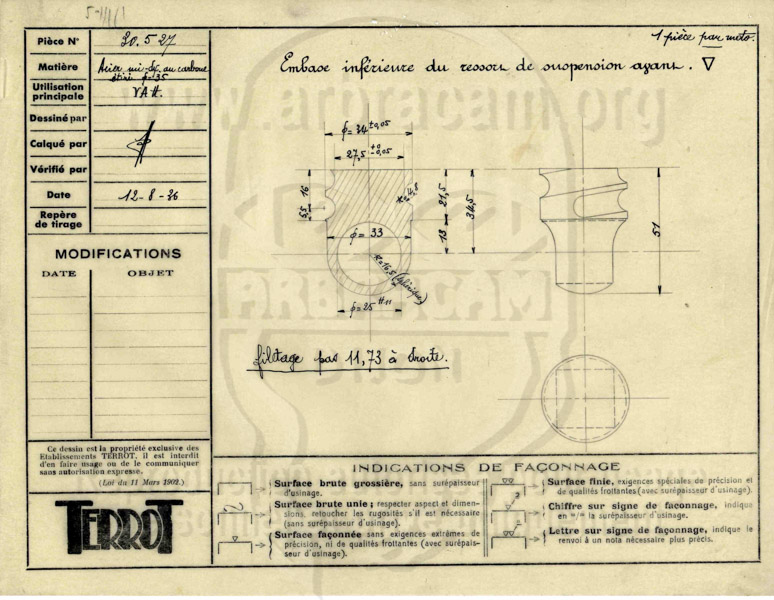 Pièce N° 20.5 27
Matière Acier mi-dr, au carbone
étiré φ=35
Utilisation
principale VAH.
Dessiné par
Calqué par
Vérifié par
Date 12-8-36
Repère
de tirage
MODIFICATIONS
DATE OBJET
Ce dessin est la propriété exclusive des
Etablissements TERROT, il est interdit
d'en faire usage ou de le communiquer
sans autorisation expresse.
(Loi du 11 Mars 1902.)
TERROT
1 pièce par moto.
Embase inférieure du ressort de suspension avant. ▽
www.arbracam.org
φ= 34 ±0,05
27,5 +0 -0,05
16
5,5
φ= 33
R=16,5 (sphérique)
φ= 25 H11
21,5
13
34,5
51
filetage pas 11,73 à droite.
ARBRACAM
INDICATIONS DE FAÇONNAGE
Surface brute grossière, sans surépaisseur
d'usinage.
Surface brute unie ; respecter aspect et dimen-
sions, retoucher les rugosités s'il est nécessaire
(sans surépaisseur d'usinage).
Surface façonnée sans exigences extrêmes de
précision, ni de qualités frottantes (avec surépais-
seur d'usinage).
Surface finie, exigences spéciales de précision et
de qualités frottantes (avec surépaisseur d'usinage).
Chiffre sur signe de façonnage, indique
en m/m la surépaisseur d'usinage.
Lettre sur signe de façonnage, indique le
renvoi à un nota nécessaire plus précis.